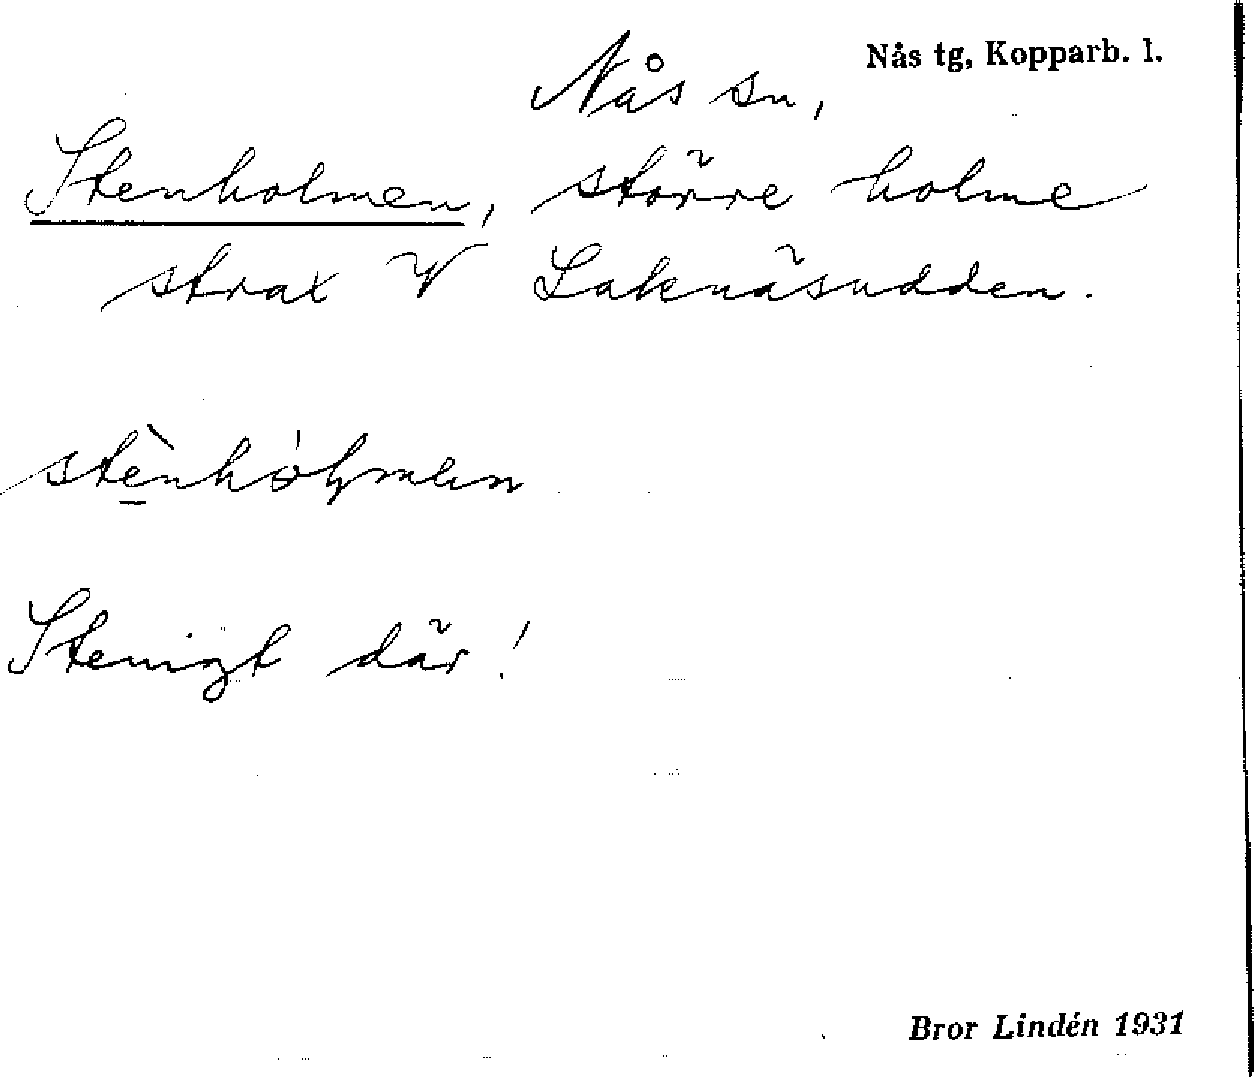 Nås tg, Kopparb. l.
Nås sn,
Stenholmen, större holme
strax V Laknäsudden.
stènhólmen
Stenigt där!
Bror Lindén 1931